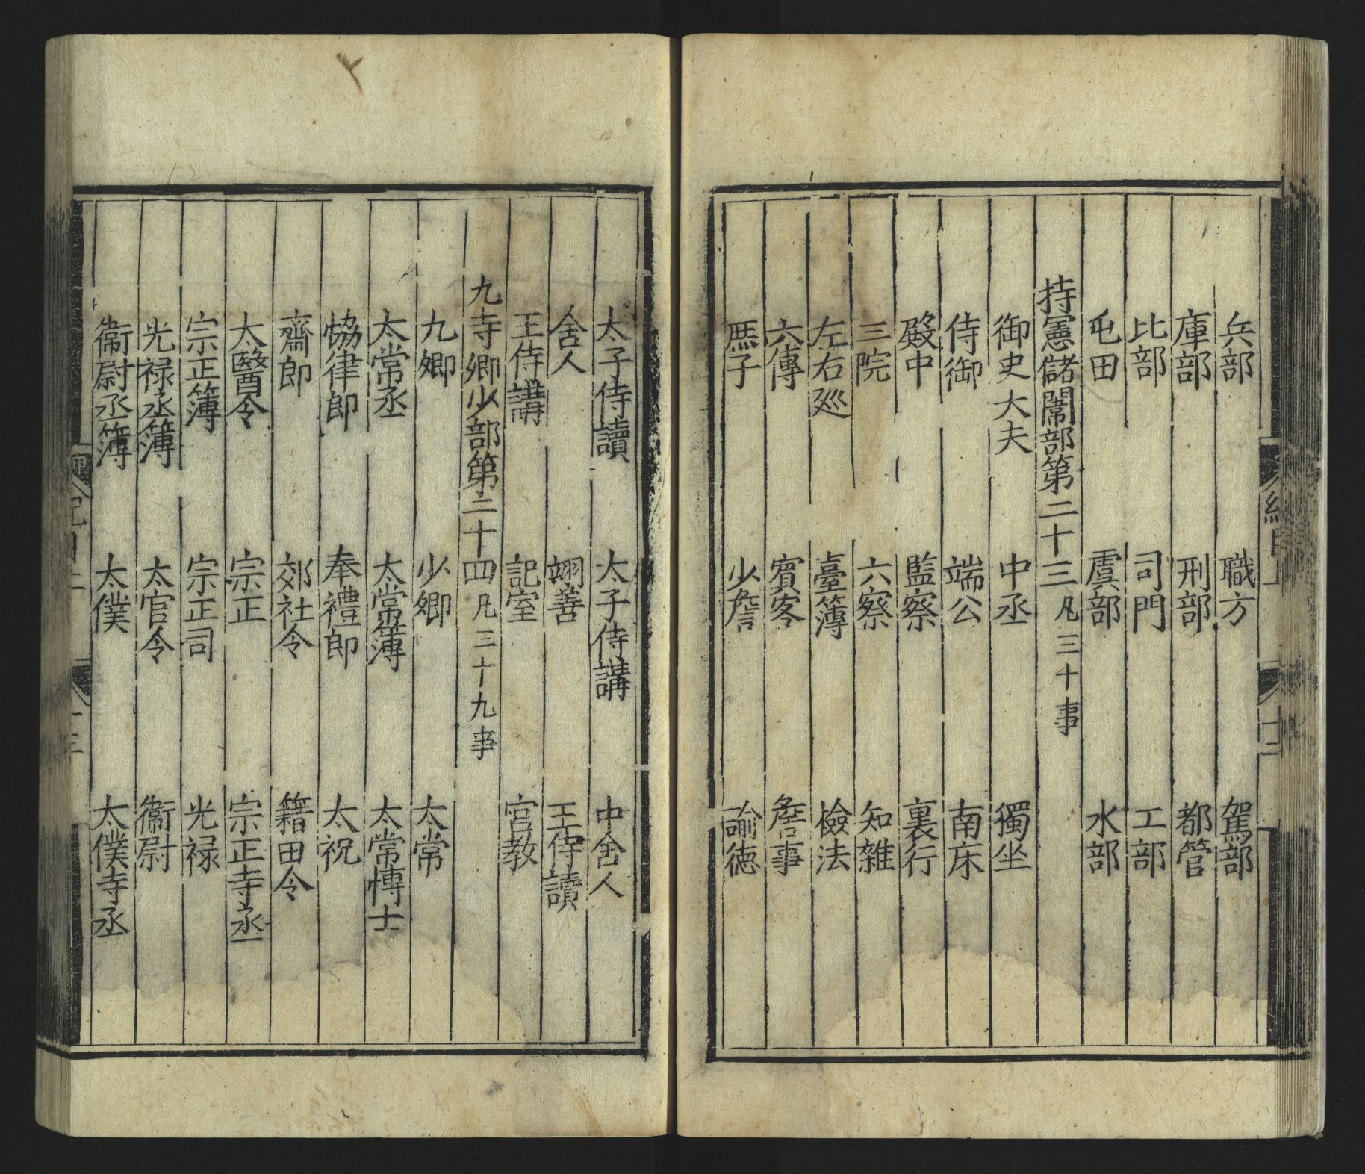 兵部 職方 駕部
庫部 刑部 都管
比部 司門 工部
屯田 虞部 水部
持憲儲闈部第二十三 凡三十事
御史大夫 中丞 獨坐
侍御 端公 南床
殿中 監察 裏行
三院 六察 知雜
左右廵 臺簿 檢法
六傅 賓客 詹事
庶子 少詹 諭德
太子侍讀 太子侍講 中舍人
舍人 翊善 王侍讀
王侍講 記室 宫教
九寺卿少部第二十四 凡三十九事
九卿 少卿 太常
太常丞 太常簿 太常愽士
恊律郎 奉禮郎 太祝
齋郎 郊社令 籍田令
太醫令 宗正 宗正寺丞
宗正簿 宗正司 光禄
光禄丞簿 太官令 衞尉
衞尉丞簿 太僕 太僕寺丞